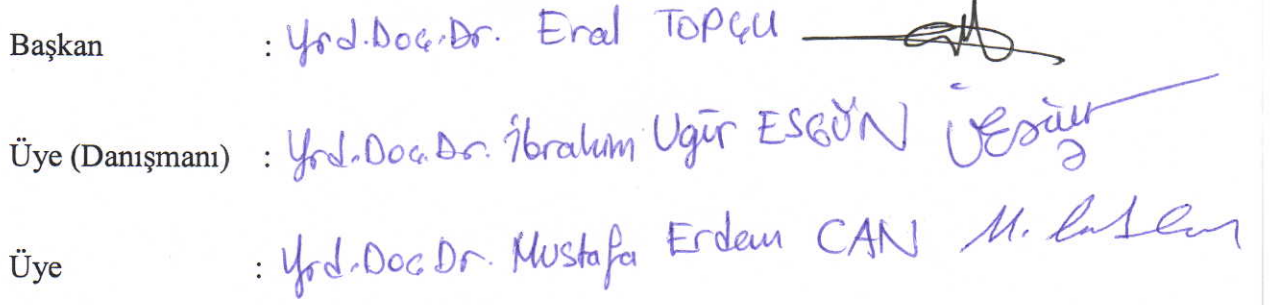 Başkan : Yrd.Doç.Dr. Eral TOPÇU
Üye (Danışmanı) : Yrd.Doç.Dr. İbrahim Uğur ESGÜN
Üye : Yrd.Doç.Dr. Mustafa Erdem CAN